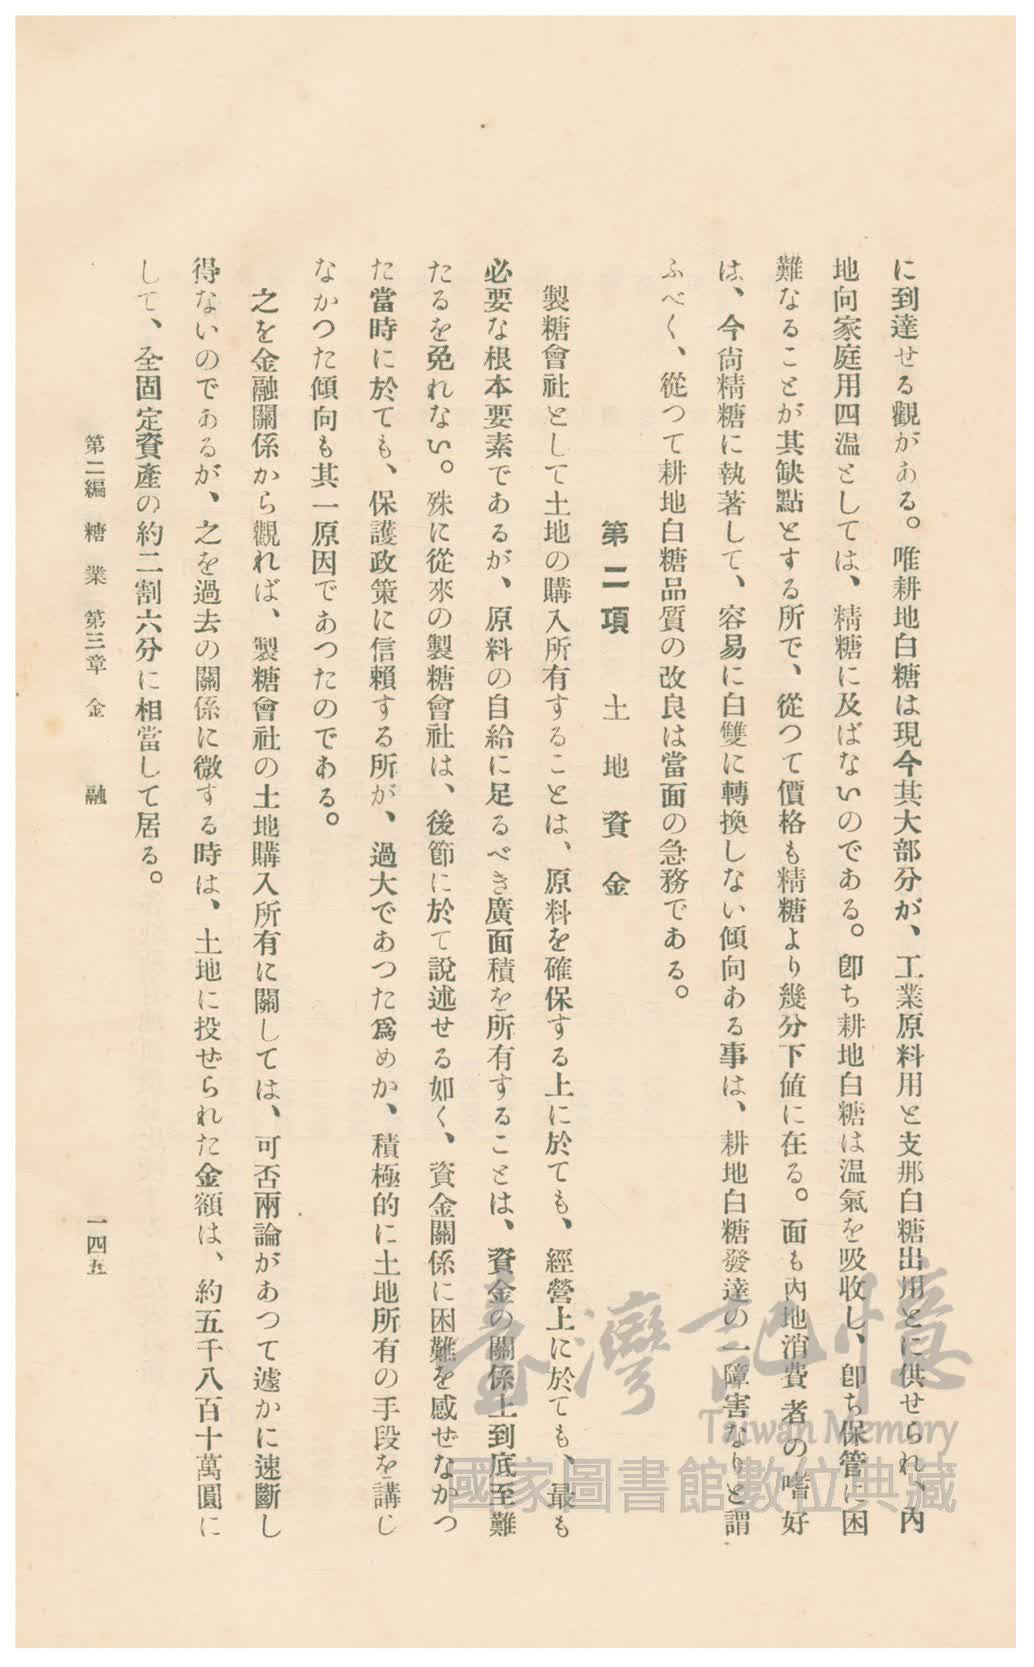 に到達せる觀がある。唯耕地白糖は現今其大部分が、工業原料用と支那白糖出用とに供せられ、內
地向家庭用四温としては、精糖に及ばないのである。卽ち耕地白糖は温氣を吸收し、卽ち保管に困
難なることが其缺點とする所で、從つて價格も精糖より幾分下値に在る。面も內地消費者の嗜好
は、今尙精糖に執著して、容易に白雙に轉換しない傾向ある事は、耕地白糖發達の一障害なりと謂
ふべく、從つて耕地白糖品質の改良は當面の急務である。
第二項 土地資金
製糖會社として土地の購入所有することは、原料を確保する上に於ても、經營上に於ても、最も
必要な根本要素であるが、原料の自給に足るべき廣面積を所有することは、資金の關係上到底至難
たるを免れない。殊に從來の製糖會社は、後節に於て說述せる如く、資金關係に困難を感ぜなかつ
た當時に於ても、保護政策に信賴する所が、過大であつた爲めか、積極的に土地所有の手段を講じ
なかつた傾向も其一原因であつたのである。
之を金融關係から觀れば、製糖會社の土地購入所有に關しては、可否兩論があつて遽かに速斷し
得ないのであるが、之を過去の關係に徵する時は、土地に投ぜられた金額は、約五千八百十萬圓に
して、全固定資產の約二割六分に相當して居る。
第二編 糖業 第三章 金融
一四五
臺灣記憶
Taiwan Memory
國家圖書館數位典藏